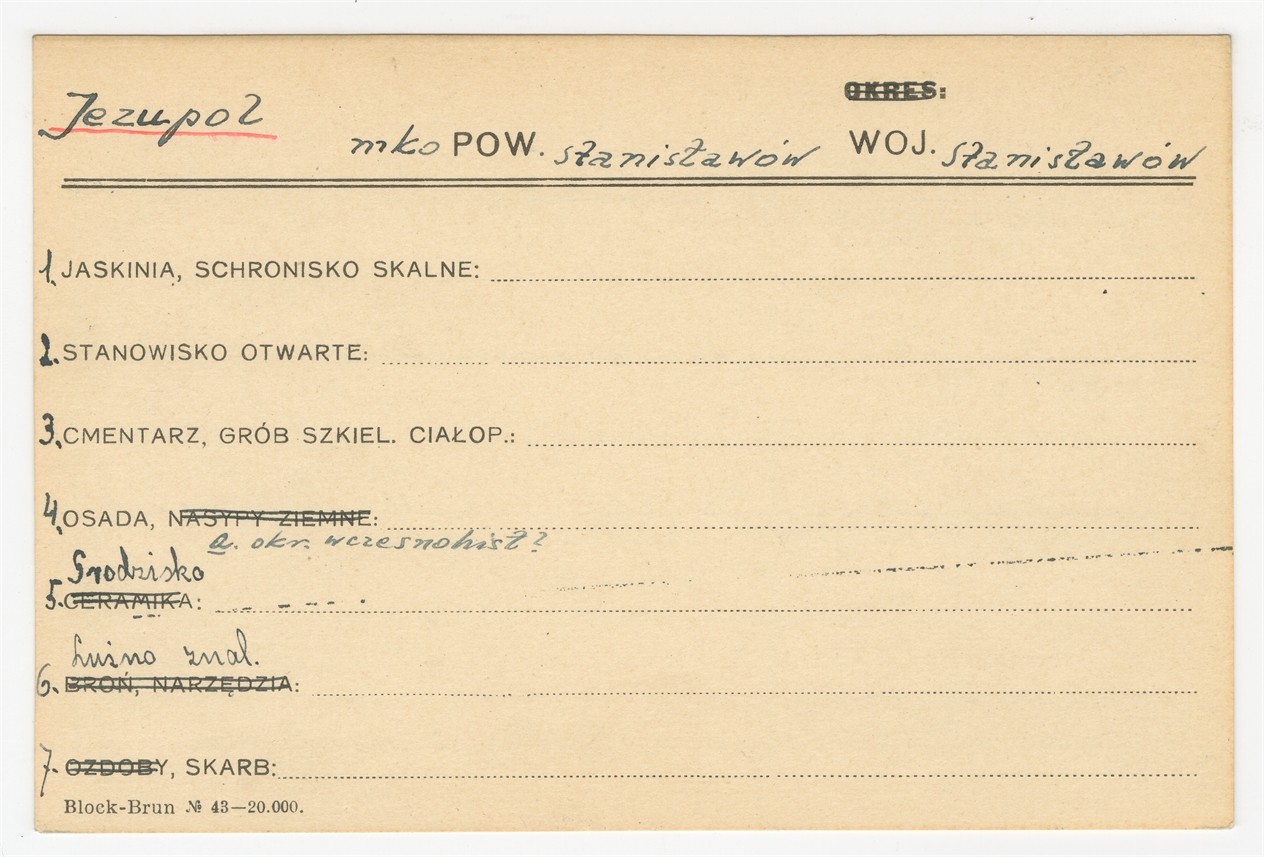 OKRES:
Jezupol
mko POW. Stanisławów WOJ. Stanisławów
1. JASKINIA, SCHRONISKO SKALNE:
2. STANOWISKO OTWARTE:
3. CMENTARZ, GRÓB SZKIEL. CIAŁOP.:
4. OSADA, NASYPY ZIEMNE:
a. okr. wczesnohist?
Grodzisko
5. CERAMIKA:
Luźno znal.
6. BROŃ, NARZĘDZIA:
7. OZDOBY, SKARB:
Block-Brun № 43—20.000.